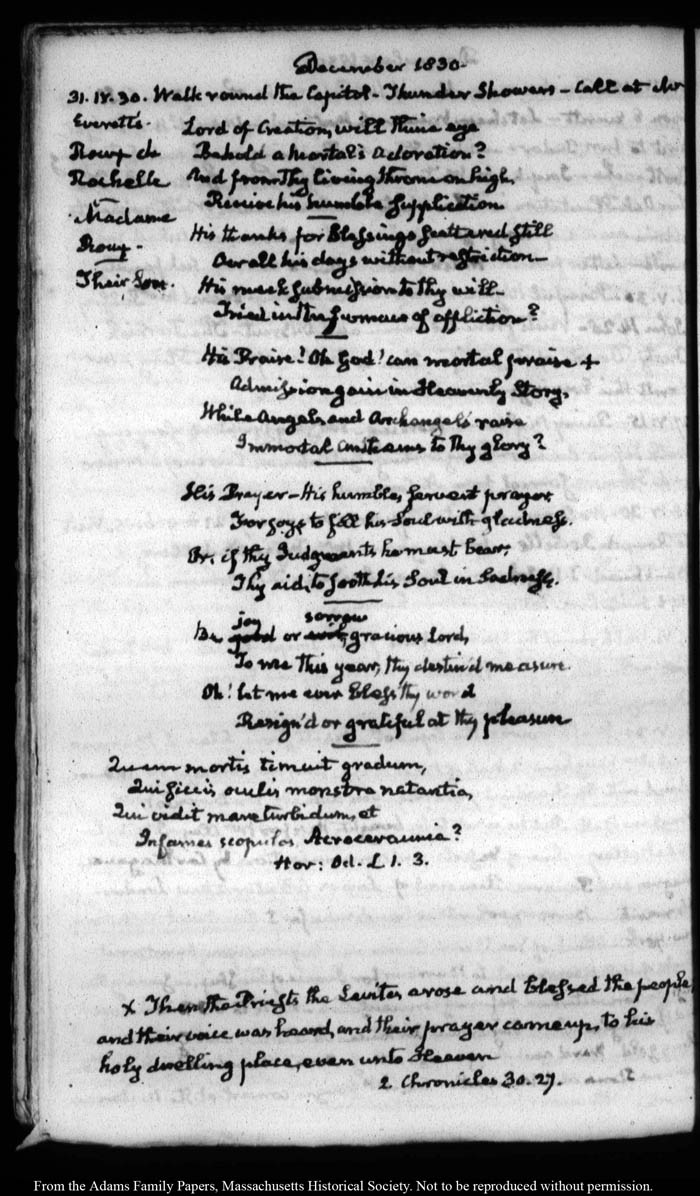 December 1830.
31. IV. 30. Walk round the Capitol - Thunder Showers - Call at Mr
Everett's. Lord of Creation, will thine eye
Roup de Behold a mortal's adoration?
Rochelle And from Thy living throne on high,
Receive his humble supplication
Madame His thanks for Blessings scattered still
Roup. O'er all his days without restriction—
Their Son. His meek submission to thy will
Tried in the furnace of affliction?
His Praise! Oh God! can mortal praise +
Admission gain in Heavenly Story,
While Angels, and Archangels raise
Immortal anthems to Thy glory?
His Prayer - His humble, fervent prayer
For joys to fill his Soul with gladness.
Or, if thy Judgments he must bear,
Thy aid, to sooth his Soul in Sadness.
joy sorrow
Be good or evil, gracious Lord,
To me this year, thy destin'd measure
Oh! let me ever bless thy word
Resign'd or grateful at thy pleasure
Quem mortis timuit gradum,
Qui siccis oculis monstra natantia,
Qui vidit mare turbidum, et
Infames scopulos Acroceraunia?
Hor: Od. L 1. 3.
x Then the Priests the Levites arose and blessed the people,
and their voice was heard, and their prayer came up, to his
holy dwelling place, even unto Heaven
2 Chronicles 30. 27.
From the Adams Family Papers, Massachusetts Historical Society. Not to be reproduced without permission.